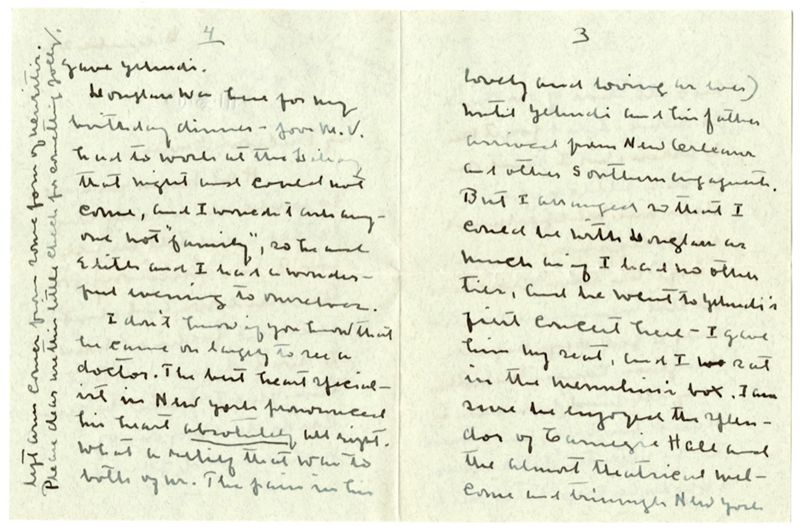 3
lovely and loving as ever)
until Yehudi and his father
arrived from New Orleans
and other Southern engagements.
But I arranged so that I
could be with Douglas as
much as if I had no other
ties, and he went to Yehudi's
first concert here – I gave
him my seat, and I sat
in the Menuhin's box. I am
sure he enjoyed the splen-
dor of Carnegie Hall and
the almost theatrical wel-
come and triumph New York
4
gave Yehudi.
Douglas was here for my
birthday dinner – poor M.V.
had to work at the Library
that night and could not
come, and I wouldn't ask any-
one not "family", so he and
Edith and I had a wonder-
ful evening to ourselves.
I don't know if you know that
he came on largely to see a
doctor. The best heart special-
ist in New York pronounced
his heart absolutely all right.
What a relief that was to
both of us. The pain in his
left arm comes from some form of neuritis.
Please dear use this little check for something jolly.